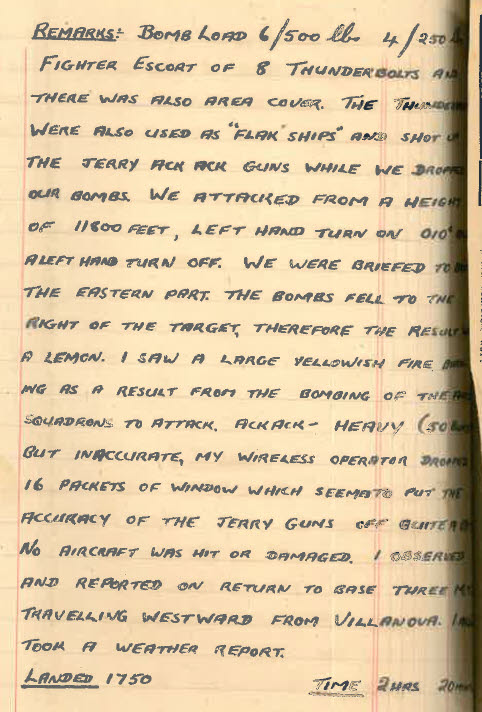 REMARKS:- BOMB LOAD 6/500 lbs 4/250
FIGHTER ESCORT OF 8 THUNDERBOLTS
THERE WAS ALSO AREA COVER. THE
WERE ALSO USED AS "FLAK SHIPS" AND SHOT UP
THE JERRY ACK ACK GUNS WHILE WE DROPPED
OUR BOMBS. WE ATTACKED FROM A HEIGHT
OF 11800 FEET, LEFT HAND TURN ON 010°
A LEFT HAND TURN OFF. WE WERE BRIEFED TO
THE EASTERN PART. THE BOMBS FELL TO THE
RIGHT OF THE TARGET, THEREFORE THE RESULT
A LEMON. I SAW A LARGE YELLOWISH FIRE
NG AS A RESULT FROM THE BOMBING OF THE
SQUADRONS TO ATTACK. ACKACK- HEAVY (50
BUT INACCURATE, MY WIRELESS OPERATOR DROPPED
16 PACKETS OF WINDOW WHICH SEEM TO PUT THE
ACCURACY OF THE JERRY GUNS OFF QUITE A
NO AIRCRAFT WAS HIT OR DAMAGED. I OBSERVED
AND REPORTED ON RETURN TO BASE THREE
TRAVELLING WESTWARD FROM VILLANOVA. I
TOOK A WEATHER REPORT.
LANDED 1750 TIME 2 HRS 20